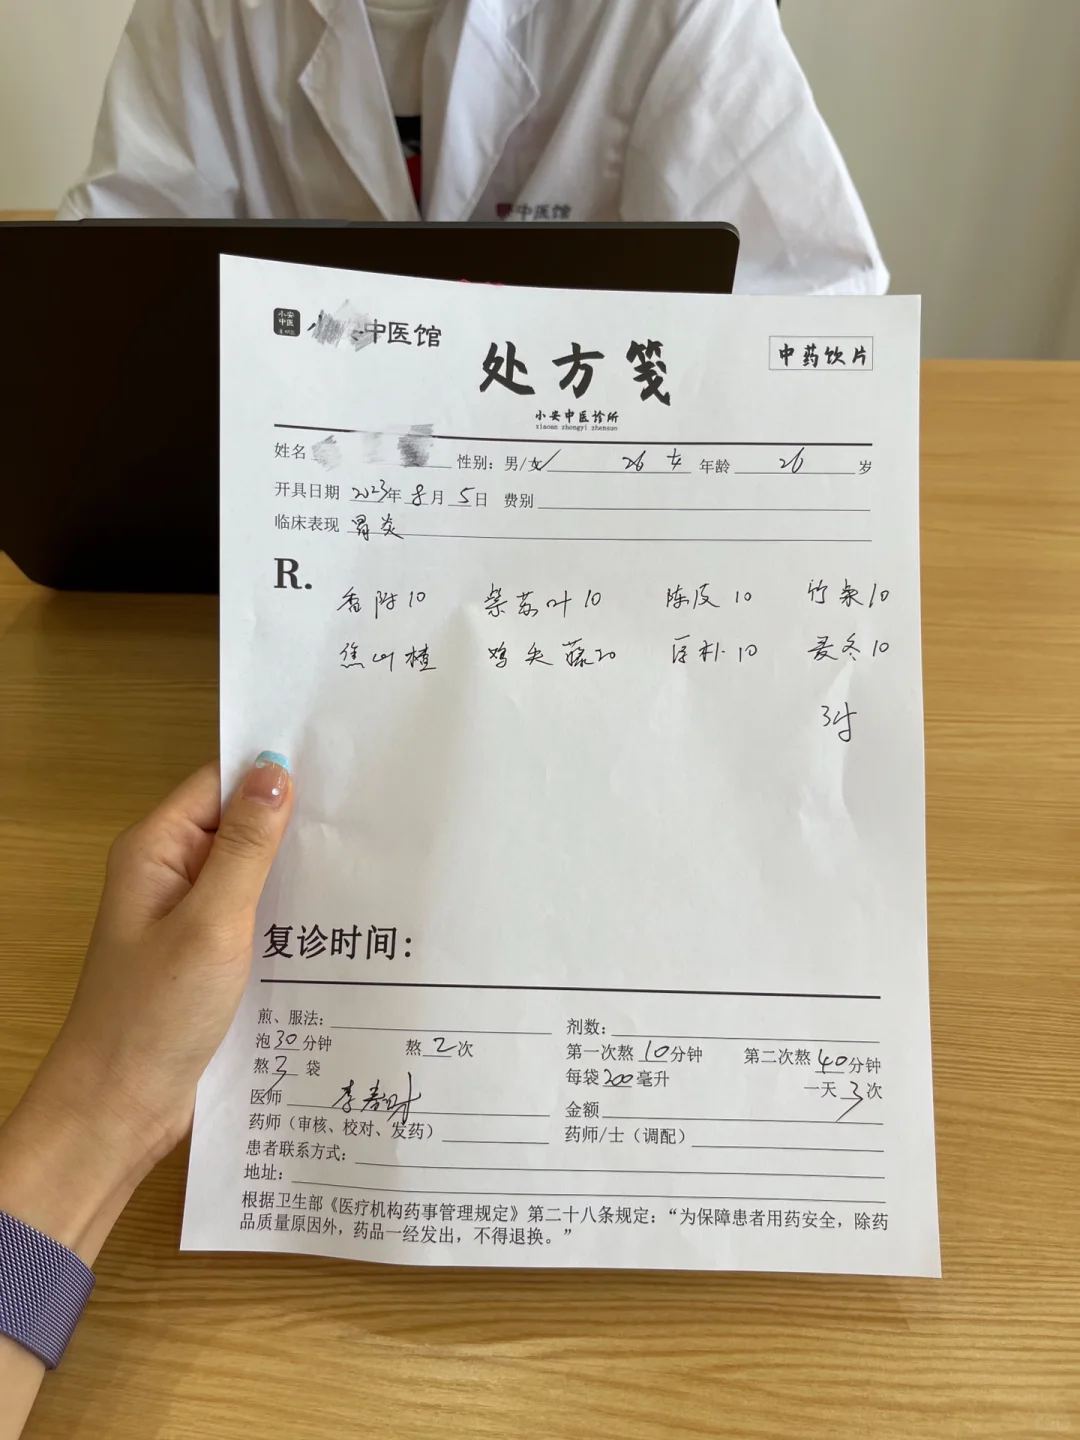 中医馆
小安
中医
中医馆
处方笺
中药饮片
小安中医诊所
xiaoan zhongyi zhensuo
姓名 性别：男/女 26 女 年龄 26 岁
开具日期 2023年 8月 5日 费别
临床表现 胃炎
R.
香附10 紫苏叶10 陈皮10 竹茹10
焦山楂 鸡矢藤20 厚朴10 麦冬10
3付
复诊时间：
煎、服法： 剂数：
泡30分钟 熬2次 第一次熬10分钟 第二次熬40分钟
熬3袋 每袋200毫升 一天3次
医师 李春 金额
药师（审核、校对、发药） 药师/士（调配）
患者联系方式：
地址：
根据卫生部《医疗机构药事管理规定》第二十八条规定：“为保障患者用药安全，除药
品质量原因外，药品一经发出，不得退换。”